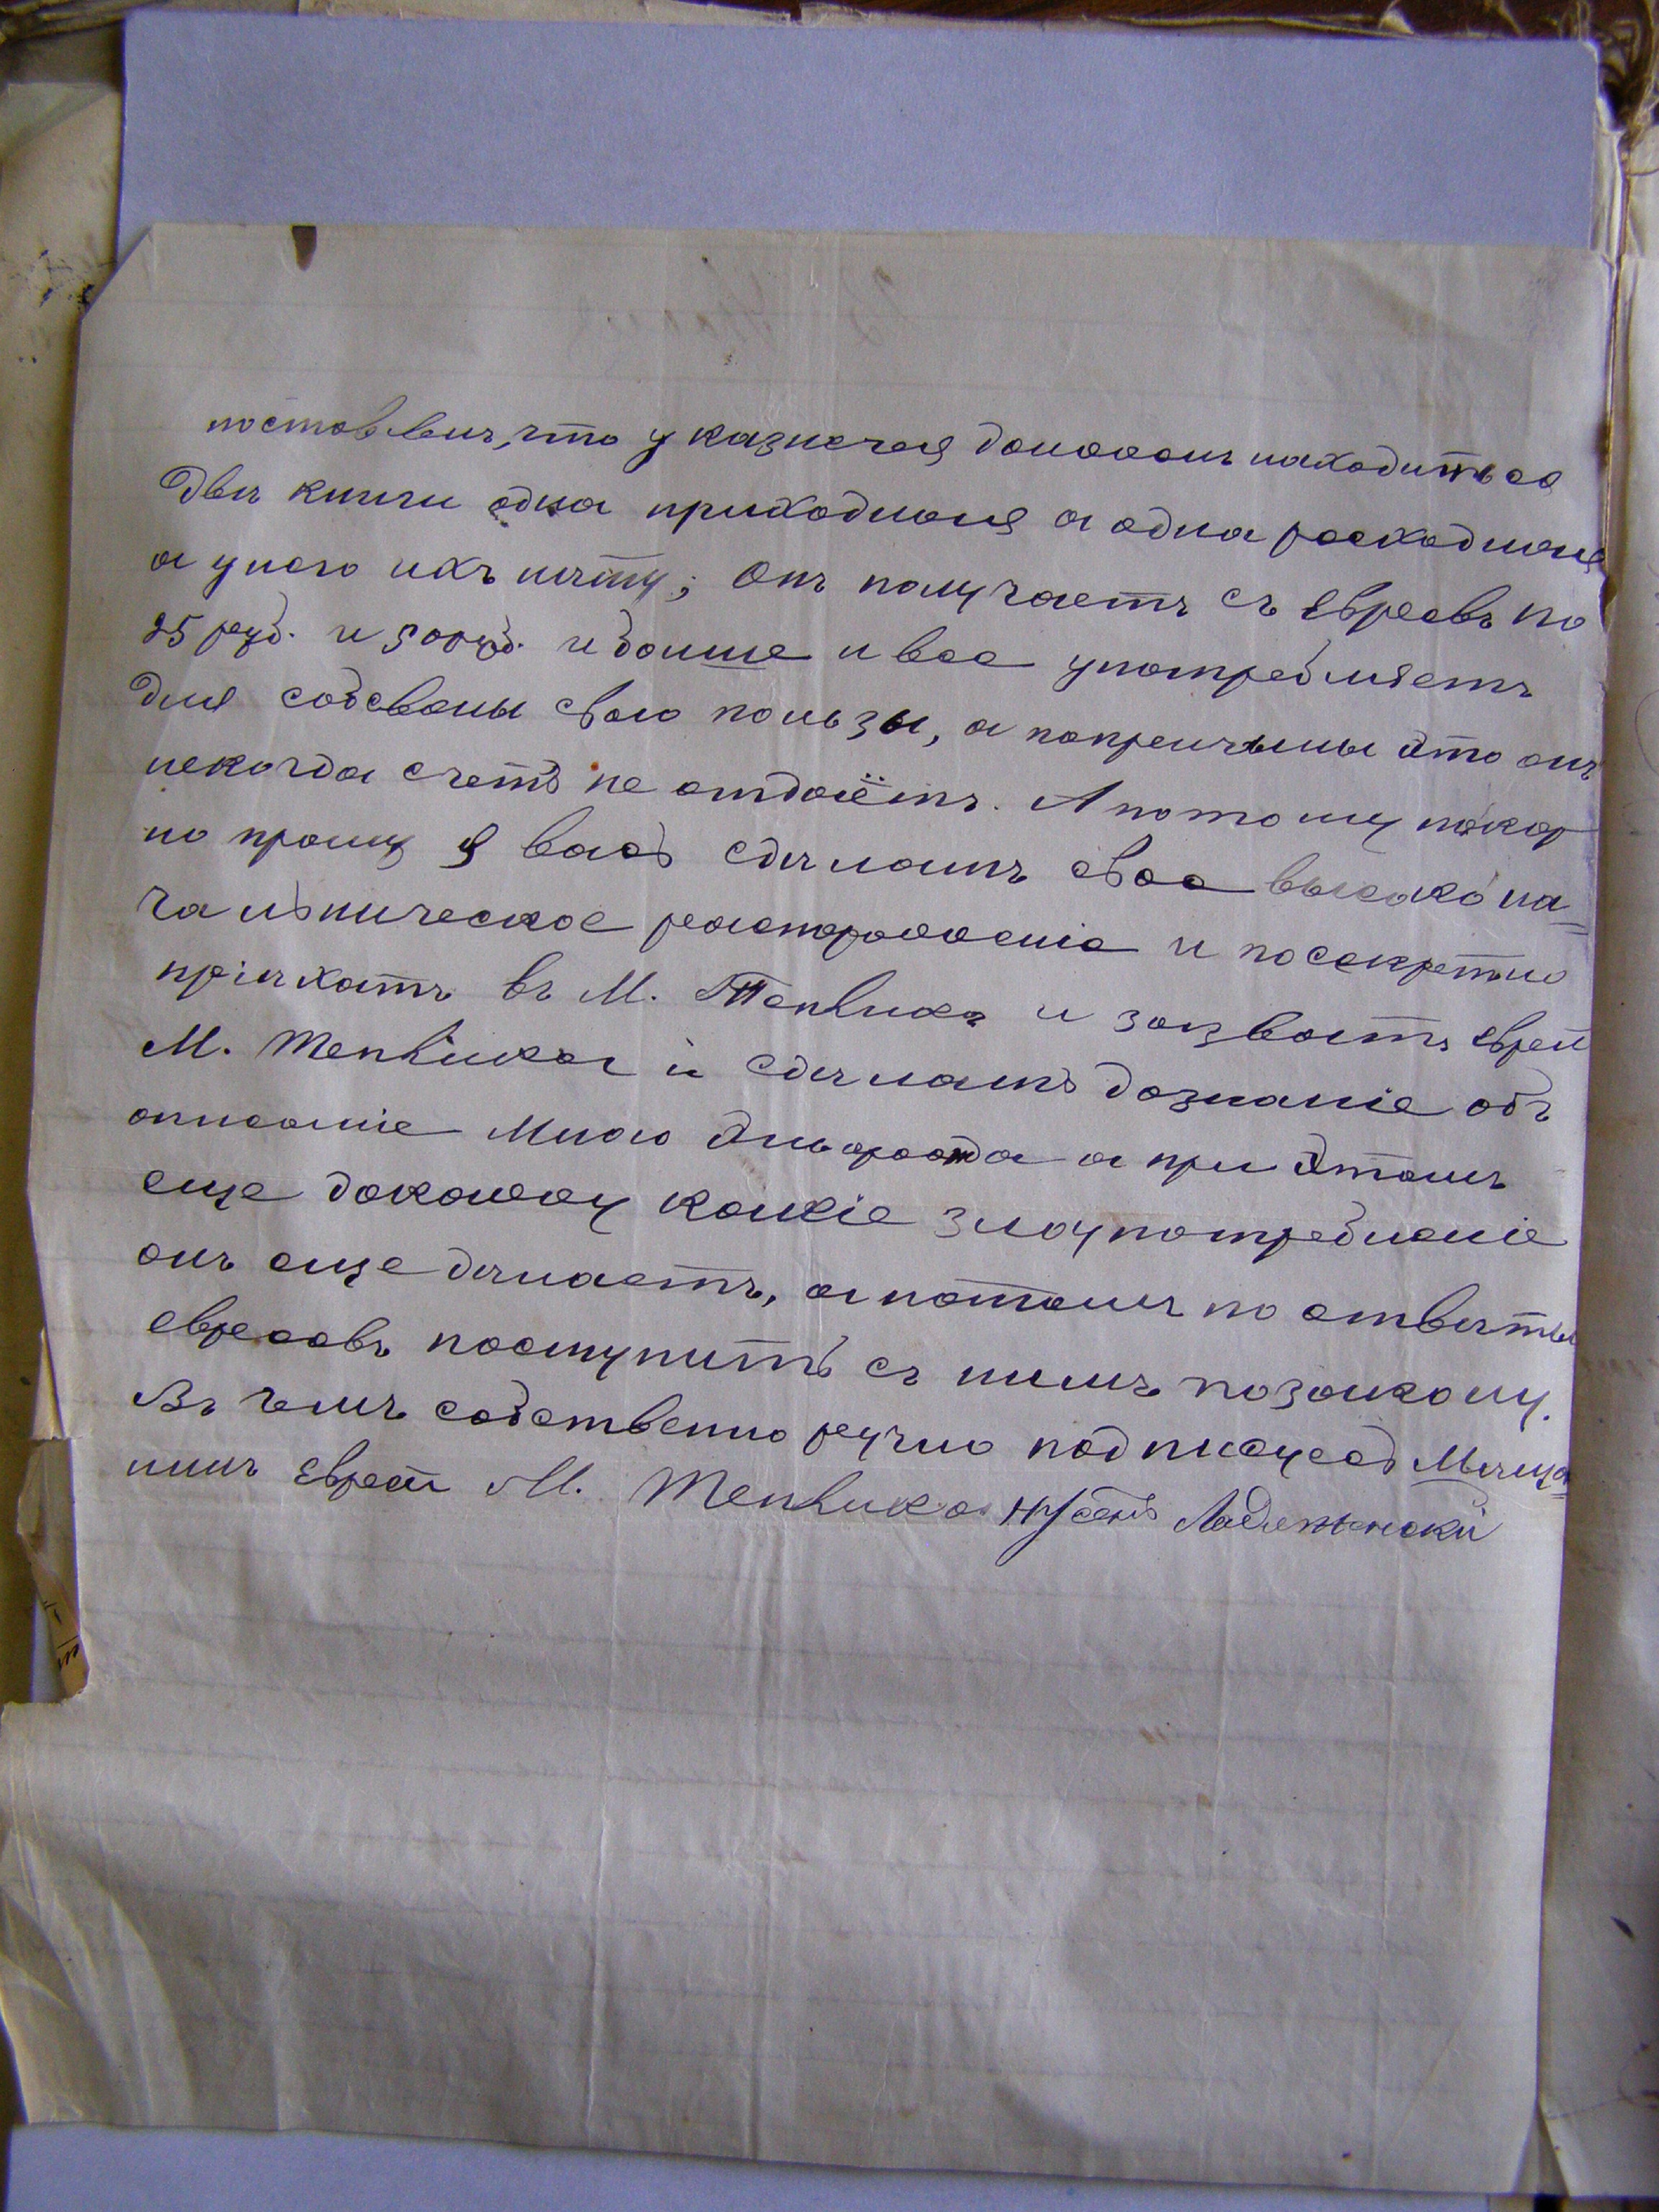 поставлин, что у казначея должонъ находиться
две книги одна приходная а одна расходная
а унего ихъ нету; Онъ получаетъ съ Евреевъ по
25 руб. и 50 руб. и больше и все употребляетъ
для собсвены свого пользы, а попричины это онъ
некогда счетъ не отдаётъ. А потому покор
но прошу я васъ сделать свое высоко на=
чальническое распоряженіе и посекретно
пріехать въ М. Тепликъ и зазвать еврей
М. Теплика и сделать дознаніе объ
описаніе мною Эльгарта а при этомъ
еще докажу какіе злоупотребленіе
онъ еще делаетъ, а потомъ по ответы
евреевъ поступить съ нимъ позакону.
Въ чемъ собственно ручно подписуюсь Меща=
нинъ Еврей М. Теплика Нусенъ Ладыженскій